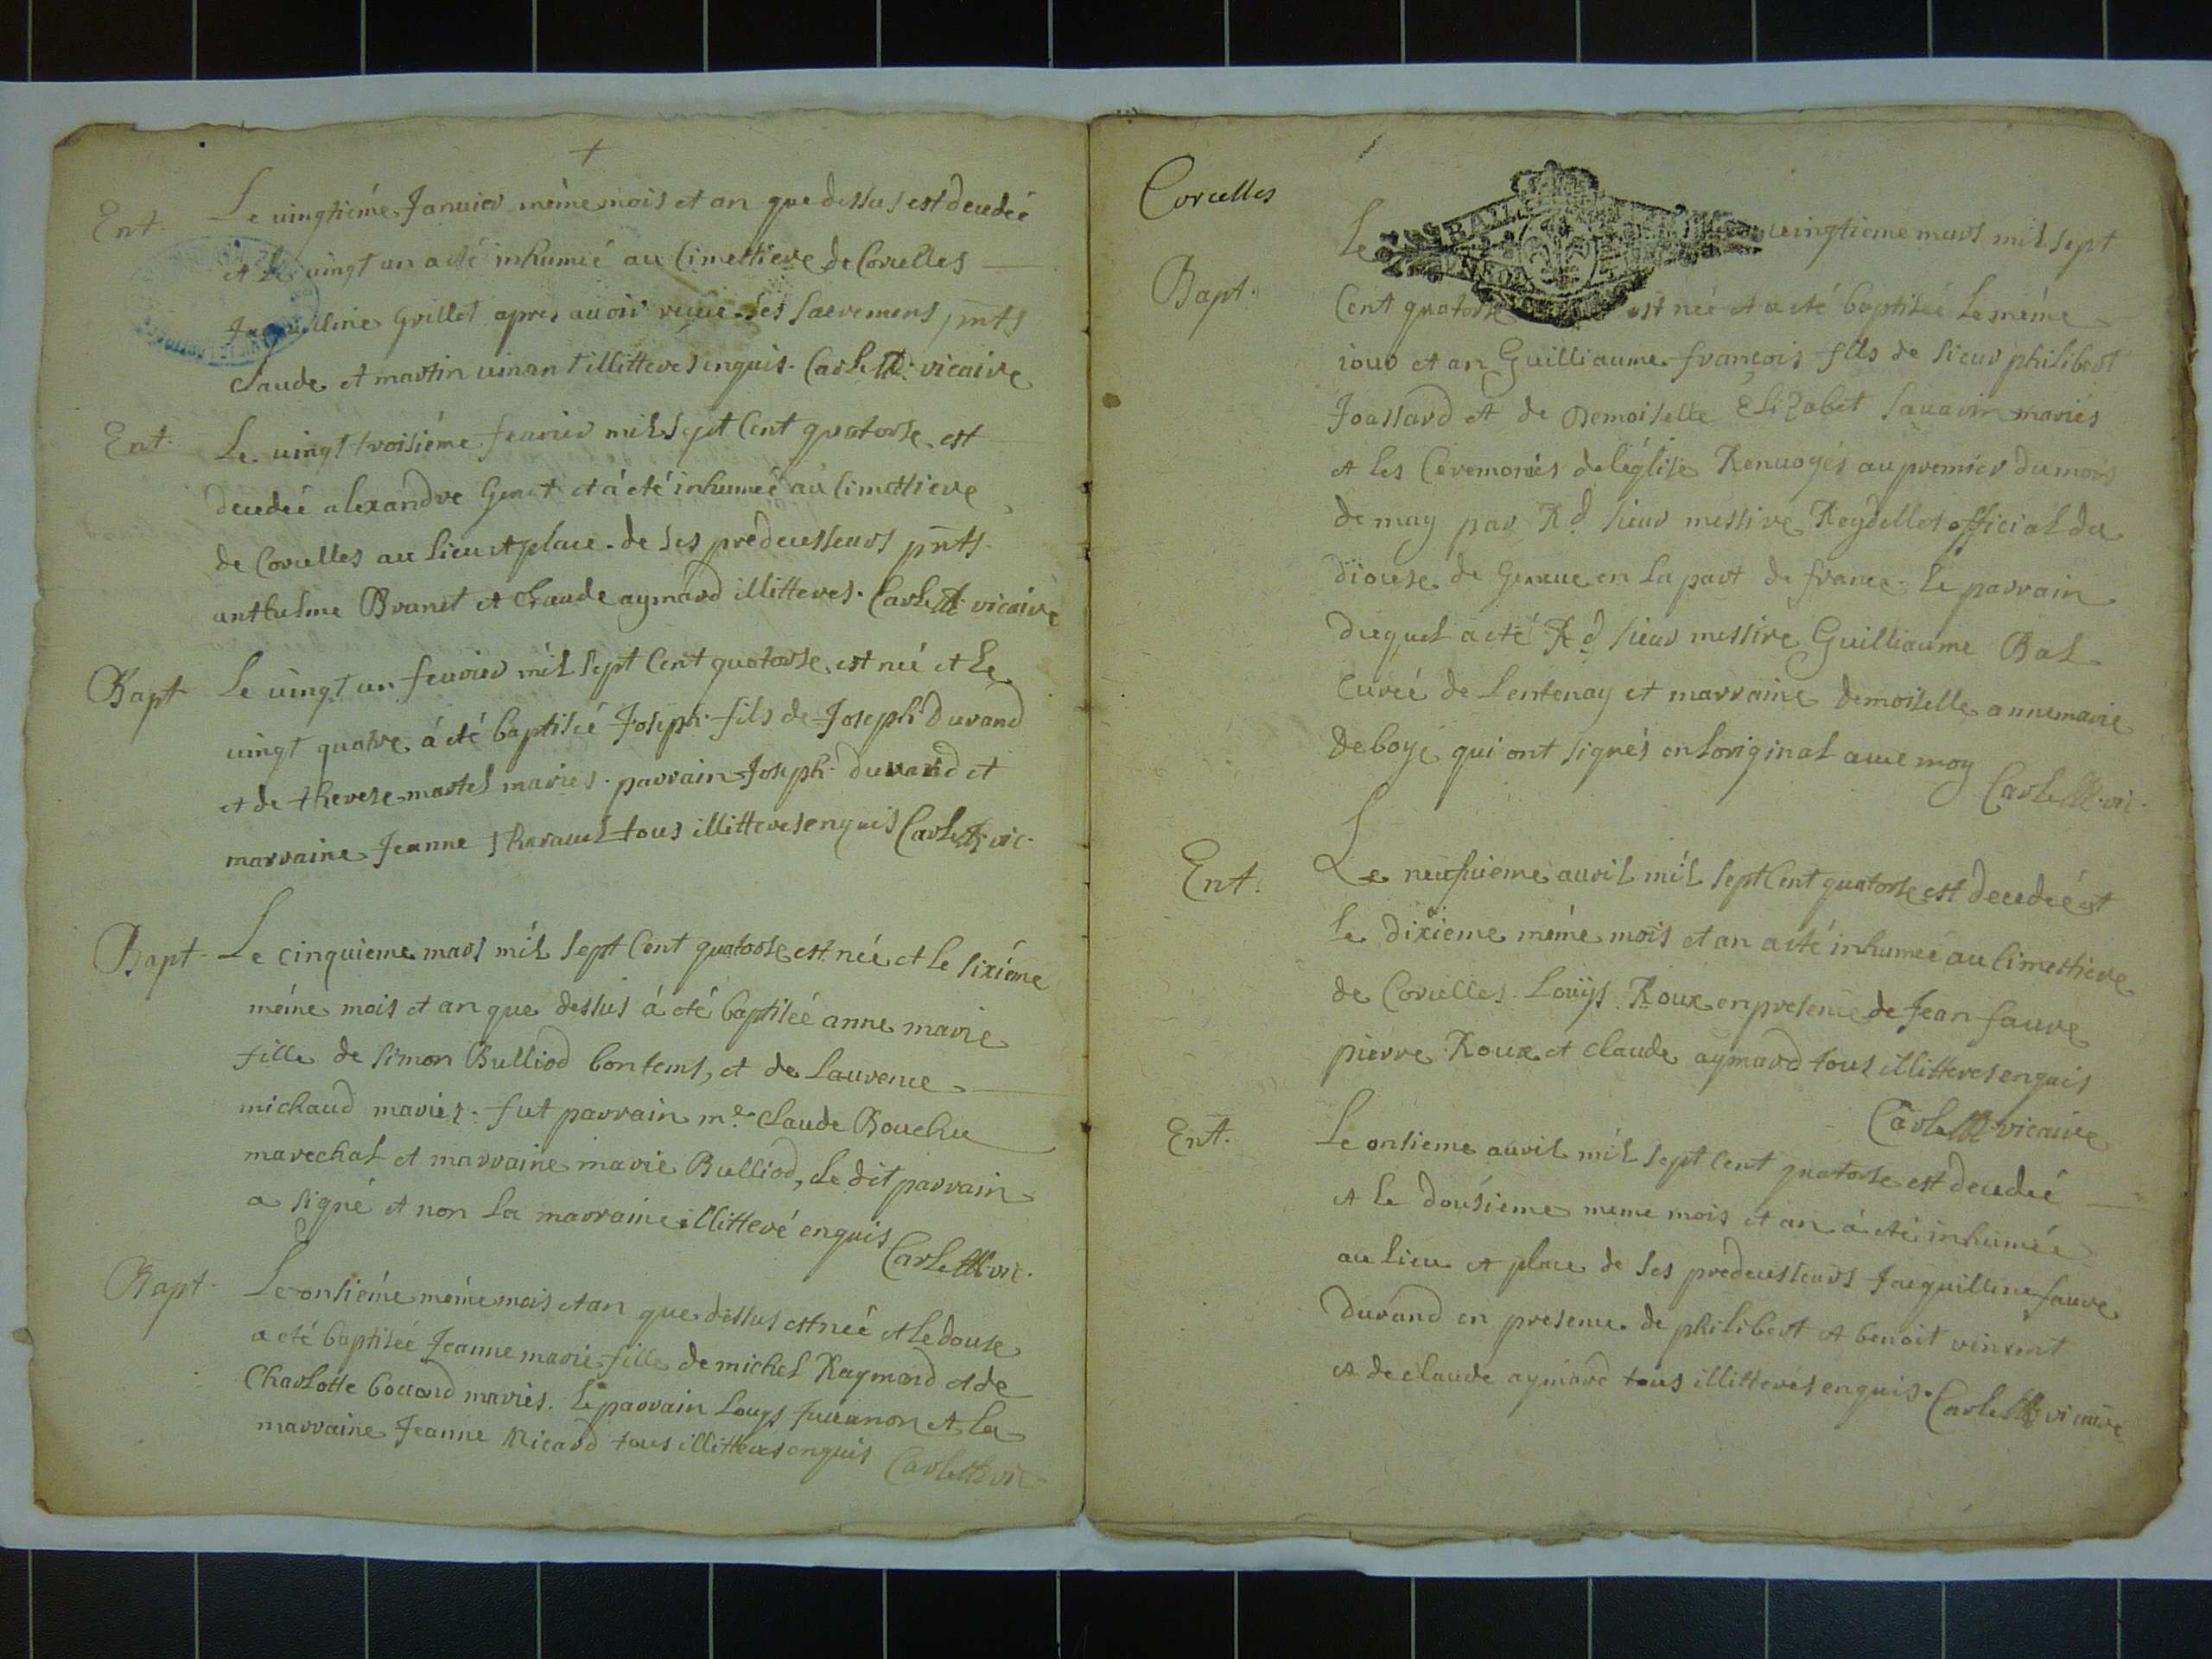 Ent. Le vingtième Janvier même mois et an que dessus est decedée
et le vingt un a été inhumée au Cimettiere de Corcelles
Jaquilline Grillet apres avoir reçue ses sacremens, pnts
Claude et martin vinant illitteres enquis. Carlett. vicaire
Ent. Le vingt troisième fevrier mil sept Cent quatorse est
decedeé alexandre Genet et á été inhumeé au Cimettiere
de Corcelles au lieu et place de ses predecesseurs pnts.
anthelme Brunet et Claude aymard illitteres. Carlett. vicaire
Bapt. Le vingt un fevrier mil sept Cent quatorse est neé et le
vingt quatre á été baptiseé Joseph fils de Joseph Durand
et de therese martel mariés. parrain Joseph durand et
marraine Jeanne tharavel tous illitteres enquis Carlett. vic.
Bapt. Le cinquieme mars mil sept Cent quatorse est neé et le sixiéme
méme mois et an que dessus á été baptiseé anne marie
fille de simon Bulliod bontems, et de laurence
michaud mariés. fut parrain me. Claude Bouchu
marechal et marraine marie Bulliod, le dit parrain
a signé et non la marraine illitteré enquis Carlett. vic.
Bapt. Le onsiéme méme mois et an que dessus est neé et le douse
a été baptiseé Jeanne marie fille de michel Raymond et de
Charlotte bouard mariés. le parrain Louys Juvanon et la
marraine Jeanne Ricard tous illitteres enquis Carlett vic.
Corcelles
Bapt. Le vingtieme mars mil sept
Cent quatorse est neé et a été baptiseé le méme
jour et an Guilliaume françois fils de sieur philibert
Joassard et de Demoiselle Elizabet savarin mariés
et les Ceremoniés de l'église Renvoyés au premier du mois
de may par Rd. sieur messire Reydellet official du
diocese de Geneve en la part de france. le parrain
duquel a été Rd. sieur messire Guilliaume Bal
Cureé de Lentenay et marraine demoiselle annemarie
deboyé qui ont signés en loriginal avec moy
Carlett. vic.
Ent. Le neufuieme avril mil sept Cent quatorse est decedeé et
le dixieme méme mois et an a été inhumeé au Cimettiere
de Corcelles Louys Roux en presence de Jean fauvre
pierre Roux et claude aymard tous illitteres enquis
Carlett. vicaire
Ent. Le onsieme avril mil sept Cent quatorse est decedeé
et le dousieme meme mois et an á été inhumée
au lieu et place de ses predecesseurs Jaquilline fauvre
Durand en presence de philibert et benoit vincent
et de claude aymard tous illitterés enquis. Carlett. vicaire